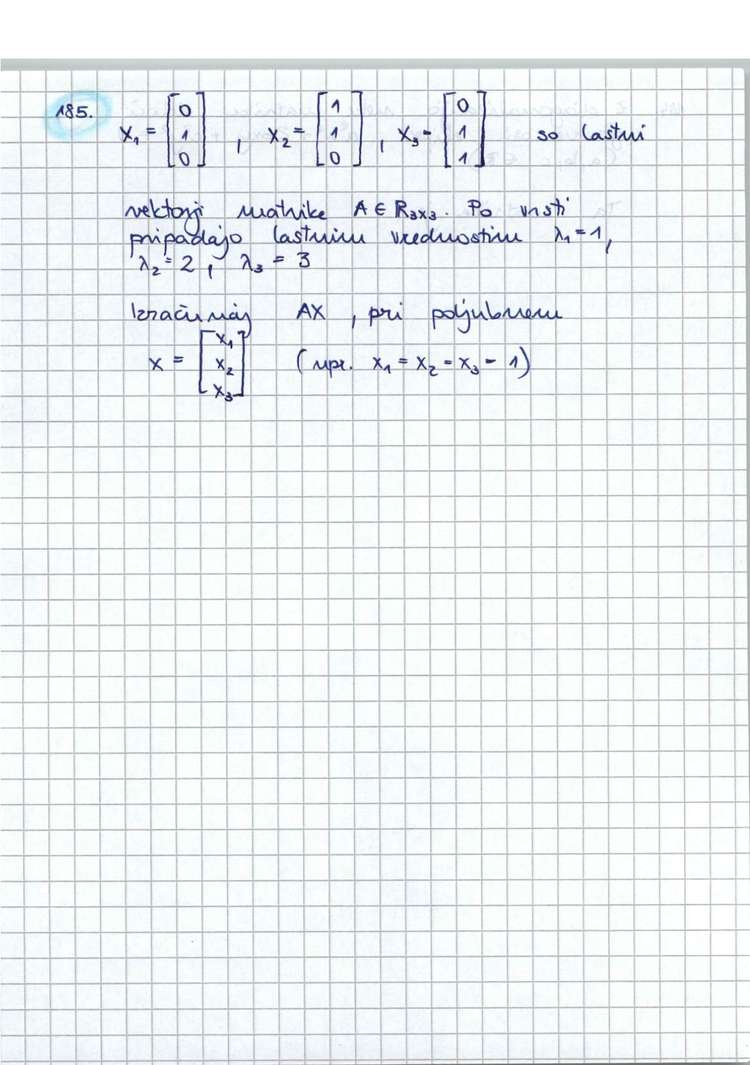 185. X₁ = [0 1 0] , X₂ = [1 1 0] , X₃ = [0 1 1] so lastni
vektorji matrike A ∈ R₃ₓ₃. Po vrsti
pripadajo lastnim vrednostim λ₁ = 1,
λ₂ = 2, λ₃ = 3
Izračunaj AX, pri poljubnem
X = [x₁ x₂ x₃] (npr. x₁ = x₂ = x₃ = 1)